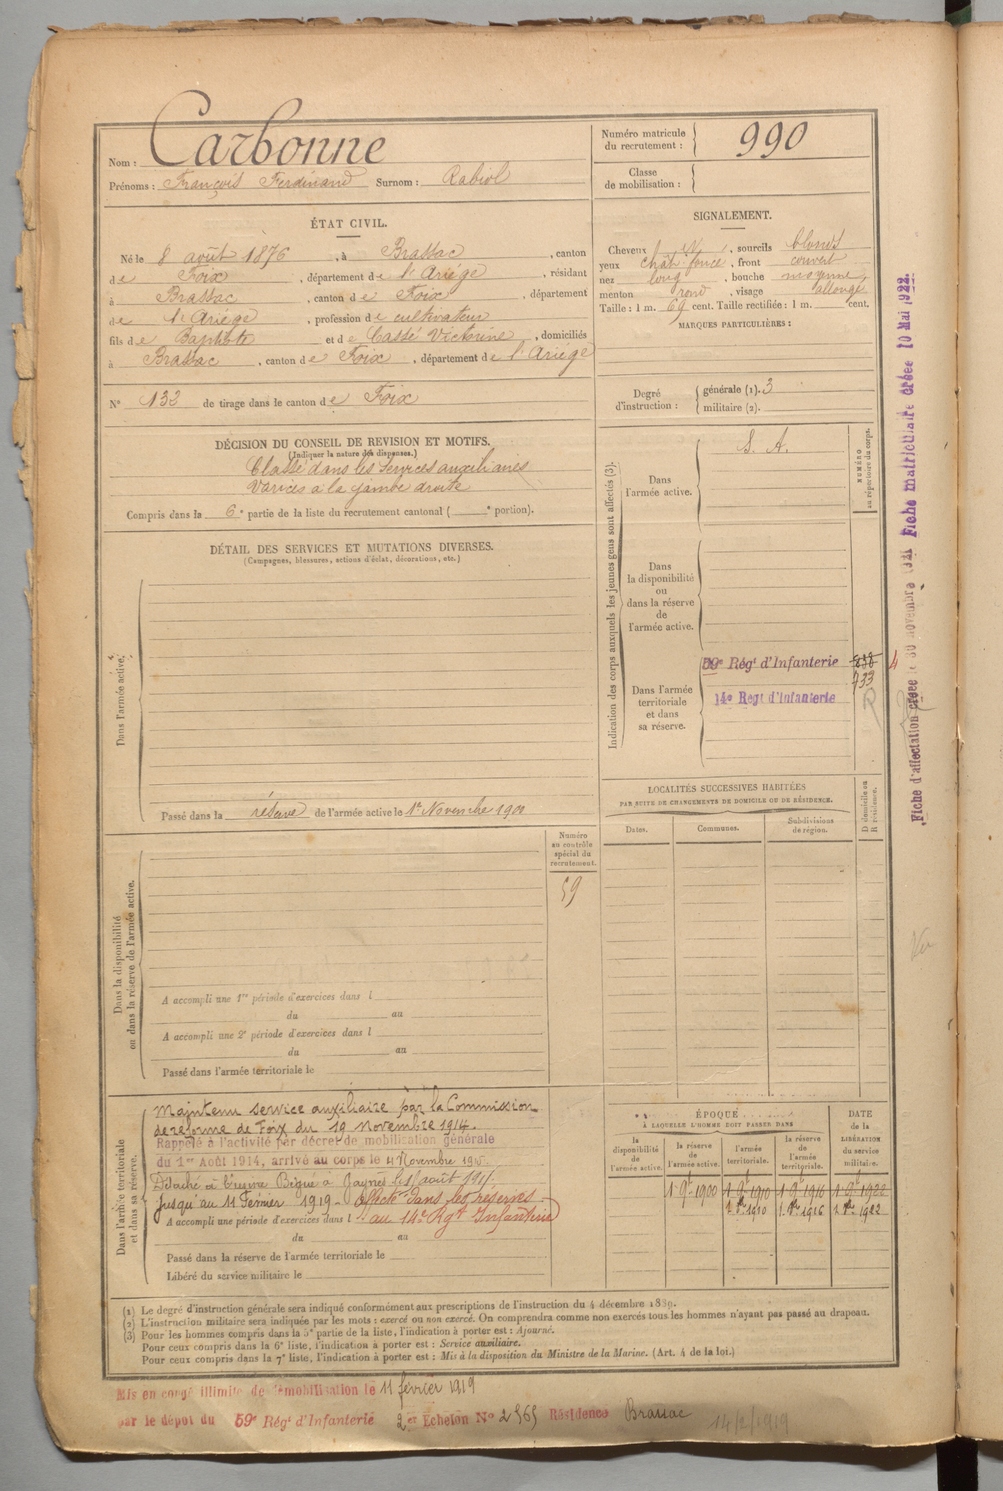 Nom : Carbonne
Prénoms : François Ferdinand Surnom : Rabiol
Numéro matricule du recrutement : 990
Classe de mobilisation :
ÉTAT CIVIL.
Né le 8 août 1876, à Brassac, canton
de Foix, département de l'Ariége, résidant
à Brassac, canton de Foix, département
de l'Ariége, profession de cultivateur
fils de Baptiste et de Cassé Victorine, domiciliés
à Brassac, canton de Foix, département de l'Ariége
N° 132 de tirage dans le canton de Foix
SIGNALEMENT.
Cheveux, sourcils blonds
yeux chât. foncé, front couvert
nez long, bouche moyenne
menton rond, visage allongé
Taille : 1 m. 69 cent. Taille rectifiée : 1 m. cent.
MARQUES PARTICULIÈRES :
Degré d'instruction : générale (1). 3
militaire (2).
DÉCISION DU CONSEIL DE REVISION ET MOTIFS.
(Indiquer la nature des dispenses.)
Classé dans les services auxiliaires
Varices à la jambe droite
Compris dans la 6e partie de la liste du recrutement cantonal ( e portion).
DÉTAIL DES SERVICES ET MUTATIONS DIVERSES.
(Campagnes, blessures, actions d'éclat, décorations, etc.)
Dans l'armée active.
Passé dans la réserve de l'armée active le 1er Novembre 1900
Indication des corps auxquels les jeunes gens sont affectés (3).
NUMÉRO au répertoire du corps.
Dans l'armée active.
S. A.
Dans la disponibilité ou dans la réserve de l'armée active.
Dans l'armée territoriale et dans sa réserve.
59e Régt d'Infanterie
14e Régt d'Infanterie
733
R
LOCALITÉS SUCCESSIVES HABITÉES
PAR SUITE DE CHANGEMENTS DE DOMICILE OU DE RÉSIDENCE.
Dates.
Communes.
Subdivisions de région.
D domicile ou R résidence.
Numéro au contrôle spécial du recrutement.
59
Dans la disponibilité ou dans la réserve de l'armée active.
A accompli une 1re période d'exercices dans l
du au
A accompli une 2e période d'exercices dans l
du au
Passé dans l'armée territoriale le
Dans l'armée territoriale et dans sa réserve.
Maintenu service auxiliaire par la Commission
de réforme de Foix du 19 novembre 1914.
Rappelé à l'activité par décret de mobilisation générale
du 1er Août 1914, arrivé au corps le 4 Novembre 1915.
Détaché à l'usine Bègue à
Jusqu'au 11 Février 1919 - Affecté dans les réserves
A accompli une période d'exercices dans l au 14e Rgt Infanterie
du au
Passé dans la réserve de l'armée territoriale le
Libéré du service militaire le
ÉPOQUE
À LAQUELLE L'HOMME DOIT PASSER DANS
la disponibilité de l'armée active.
la réserve de l'armée active.
l'armée territoriale.
la réserve de l'armée territoriale.
DATE de la LIBÉRATION du service militaire.
1 9bre 1900 1 9bre 1910 1 9bre 1916 1 9bre 1922
1910 1916 1922
(1) Le degré d'instruction générale sera indiqué conformément aux prescriptions de l'instruction du 4 décembre 1889.
(2) L'instruction militaire sera indiquée par les mots : exercé ou non exercé. On comprendra comme non exercés tous les hommes n'ayant pas passé au drapeau.
(3) Pour les hommes compris dans la 5e partie de la liste, l'indication à porter est : Ajourné.
Pour ceux compris dans la 6e liste, l'indication à porter est : Service auxiliaire.
Pour ceux compris dans la 7e liste, l'indication à porter est : Mis à la disposition du Ministre de la Marine. (Art. 4 de la loi.)
Mis en congé illimité de démobilisation le 11 février 1919
par le dépôt du 59e Régt d'Infanterie 2e Echelon No 2565 Résidence Brassac
14/2/1919
Fiche d'affectation créée le 30 novembre
Fiche matriculaire créée 10 Mai 1922.